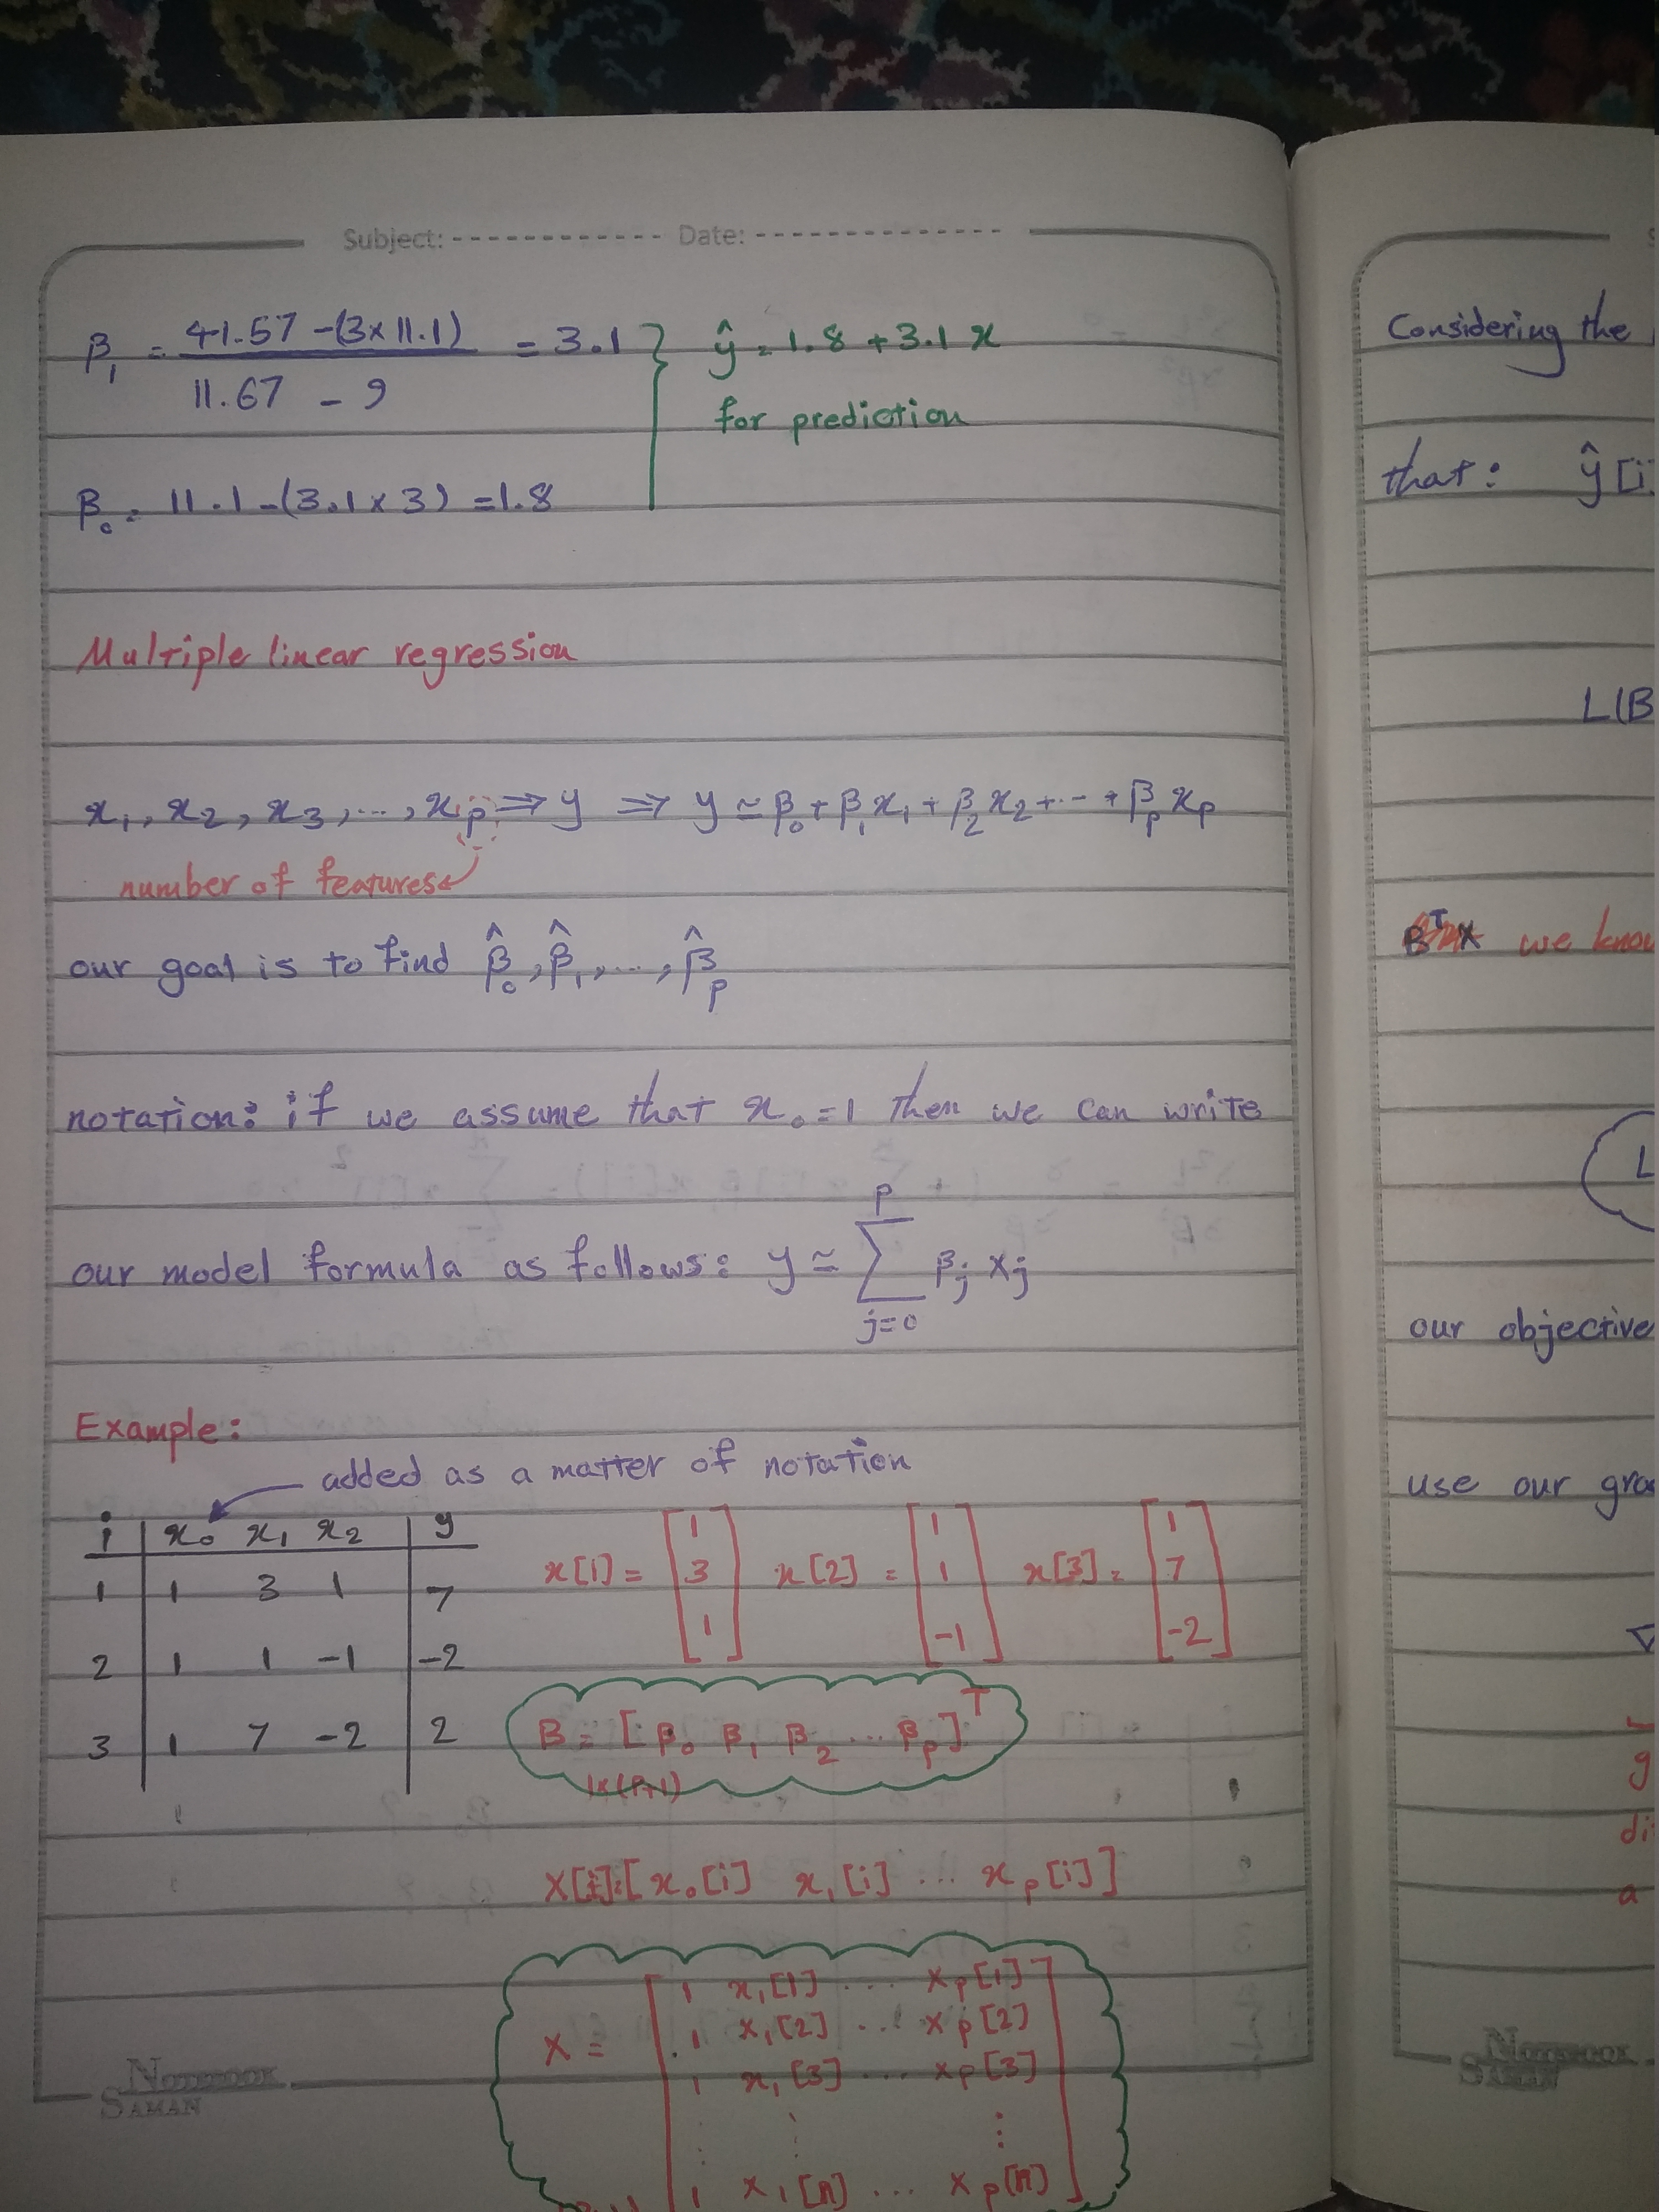 Subject: Date:
β₁ = (41.57 - (3×11.1)) / (11.67 - 9) = 3.1 } ŷ = 1.8 + 3.1 x
for prediction
β₀ = 11.1 - (3.1 × 3) = 1.8
Multiple linear regression
x₁, x₂, x₃, ..., xₚ ⇒ y ⇒ y ≃ β₀ + β₁x₁ + β₂x₂ + ... + βₚxₚ
number of features
our goal is to find β̂₀, β̂₁, ..., β̂ₚ
notation: if we assume that x₀ = 1 then we can write
our model formula as follows: y ≃ Σ_{j=0}^{p} βⱼ xⱼ
Example:
added as a matter of notation
i | x₀ x₁ x₂ | y
1 | 1 3 1 | 7
2 | 1 1 -1 | -2
3 | 1 7 -2 | 2
x[1] = [1 3 1] x[2] = [1 1 -1] x[3] = [1 7 -2]
B = [β₀ β₁ β₂ ... βₚ]ᵀ
1×(p+1)
X[i] = [x₀[i] x₁[i] ... xₚ[i]]
X =
1 x₁[1] ... xₚ[1]
1 x₁[2] ... xₚ[2]
1 x₁[3] ... xₚ[3]
⋮ ⋮ ⋮
1 x₁[n] ... xₚ[n]
NOTEBOOK
SAMAN
Considering the
that: ŷ[i
L(B
BᵀX we know
L
our objective
use our gra
∇
g
di
a
NOTEBOOK
SAMAN